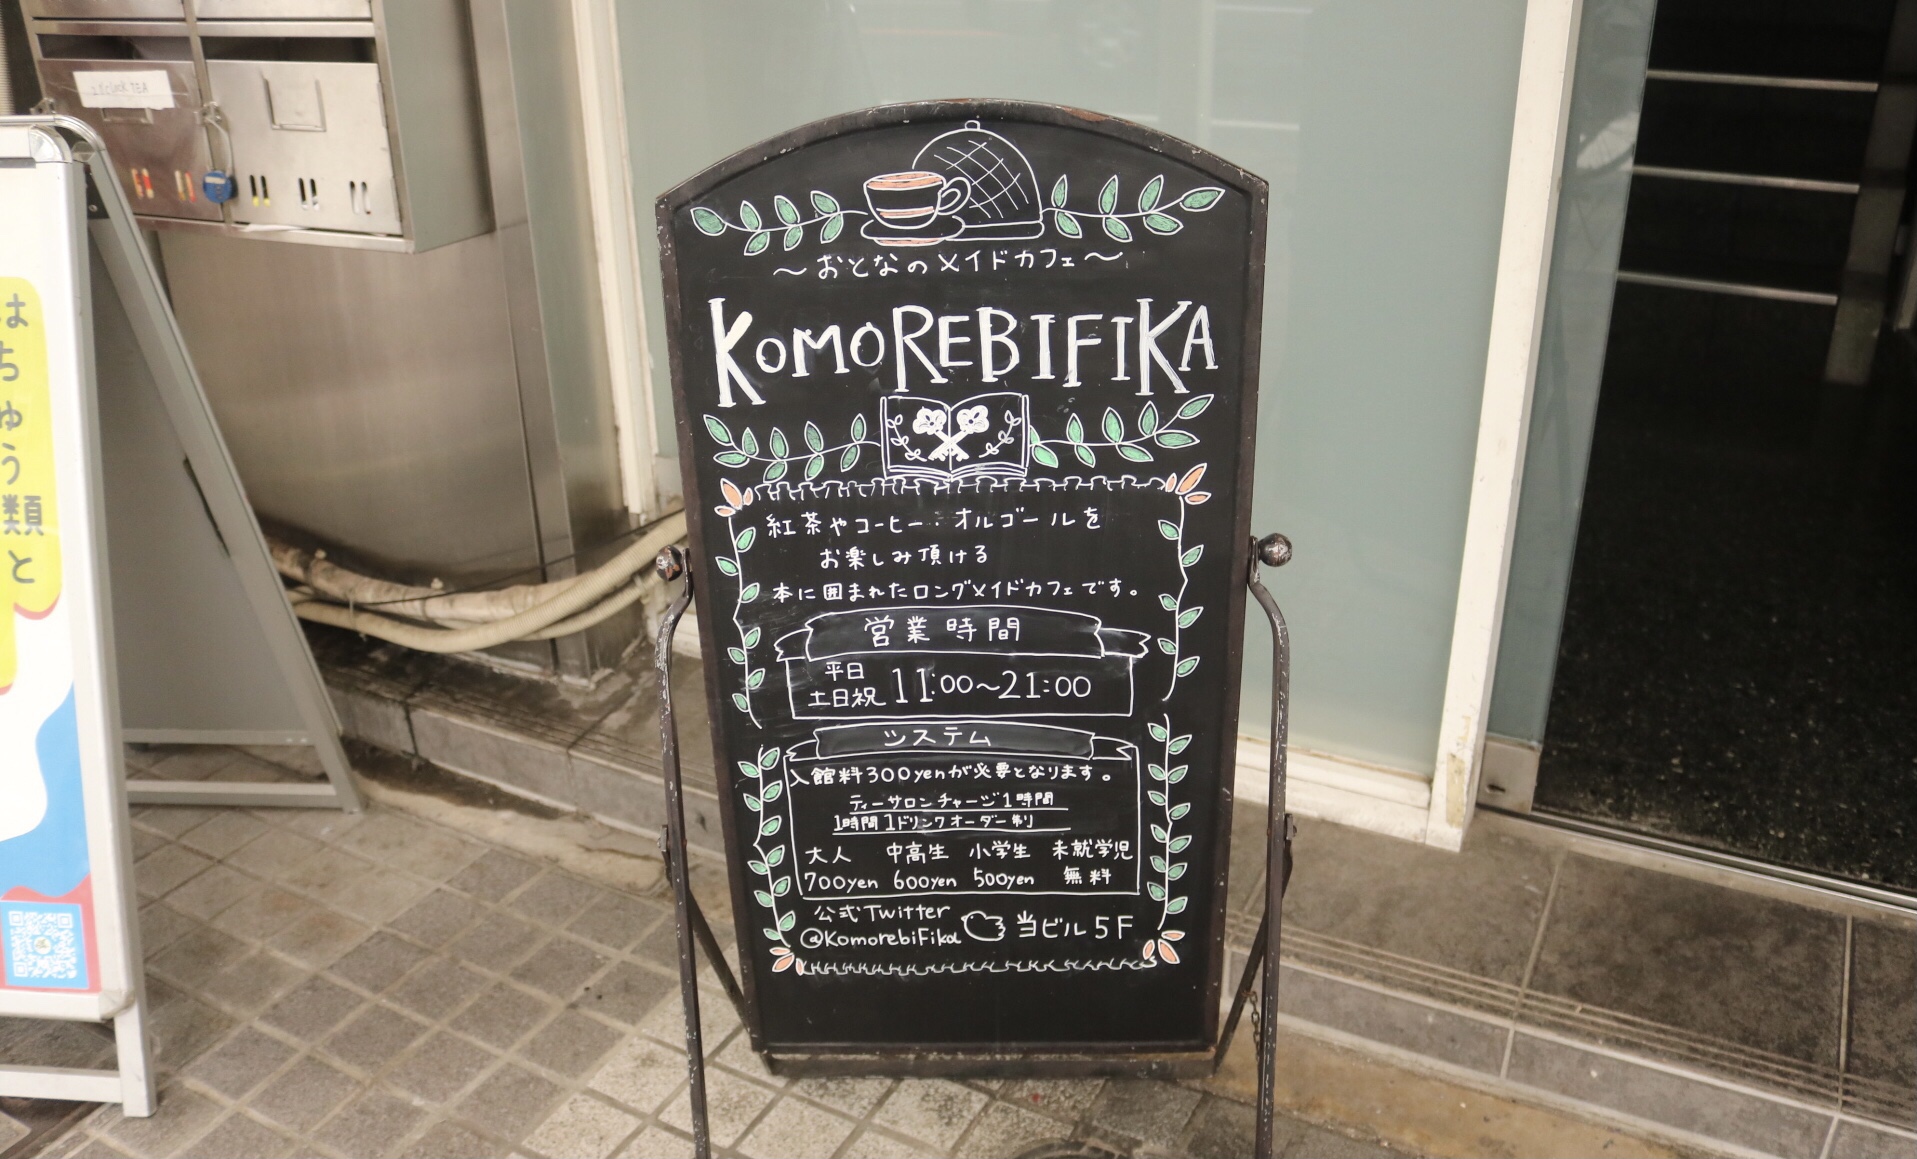 1 o'clock TEA
はちゅう類と
〜おとなのメイドカフェ〜
KOMOREBIFIKA
紅茶やコーヒー・オルゴールを
お楽しみ頂ける
本に囲まれたロングメイドカフェです。
営業時間
平日
土日祝 11:00〜21:00
システム
入館料300yenが必要となります。
ティーサロンチャージ1時間
1時間1ドリンクオーダー制
大人 中高生 小学生 未就学児
700yen 600yen 500yen 無料
公式Twitter
@KomorebiFika 当ビル5F